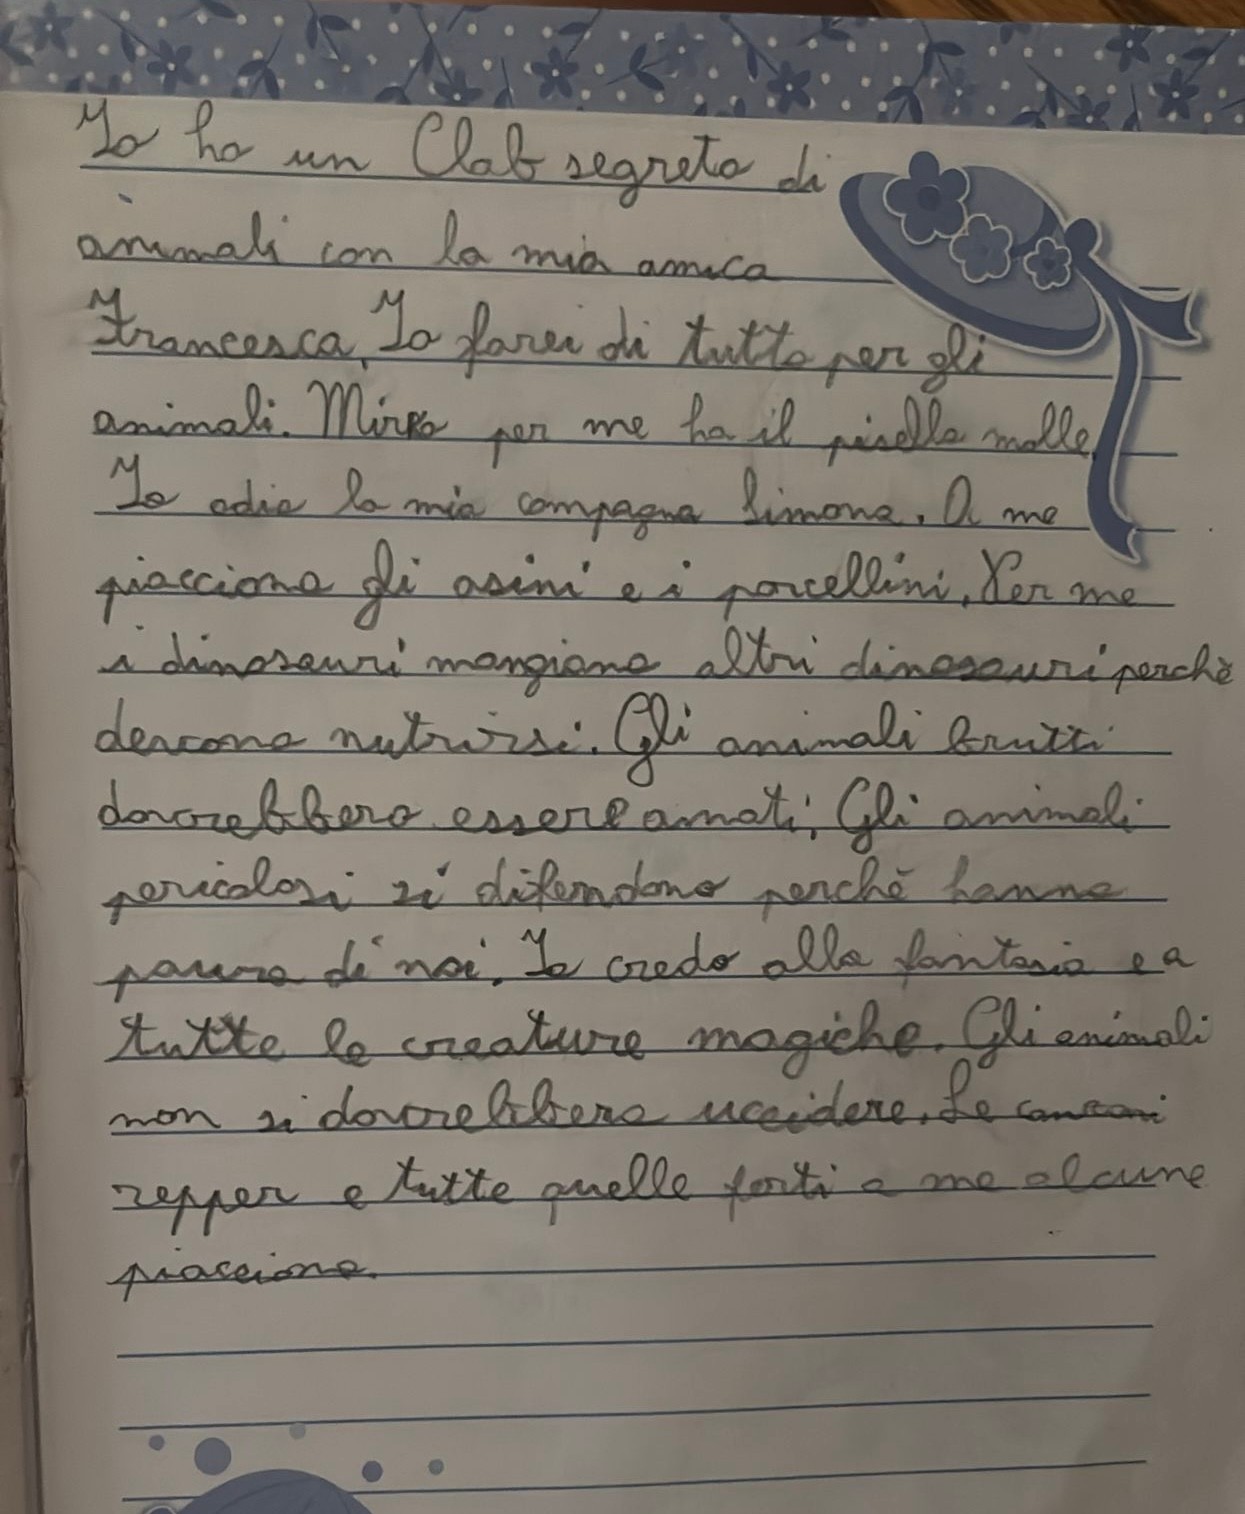 Io ho un Clab segreto di
animali con la mia amica
Francesca, Io farei di tutto per gli
animali. Mirko per me ha il pisello molle.
Io odio la mia compagna Simona. A me
piacciono gli asini e i porcellini. Per me
i dinosauri mangiano altri dinosauri perchè
devono nutrirsi. Gli animali brutti
dovrebbero essere amati. Gli animali
pericolosi si difendono perchè hanno
paura di noi. Io credo alla fantasia e a
tutte le creature magiche. Gli animali
non si dovrebbero uccidere. Le canzoni
repper e tutte quelle forti a me alcune
piacciono.